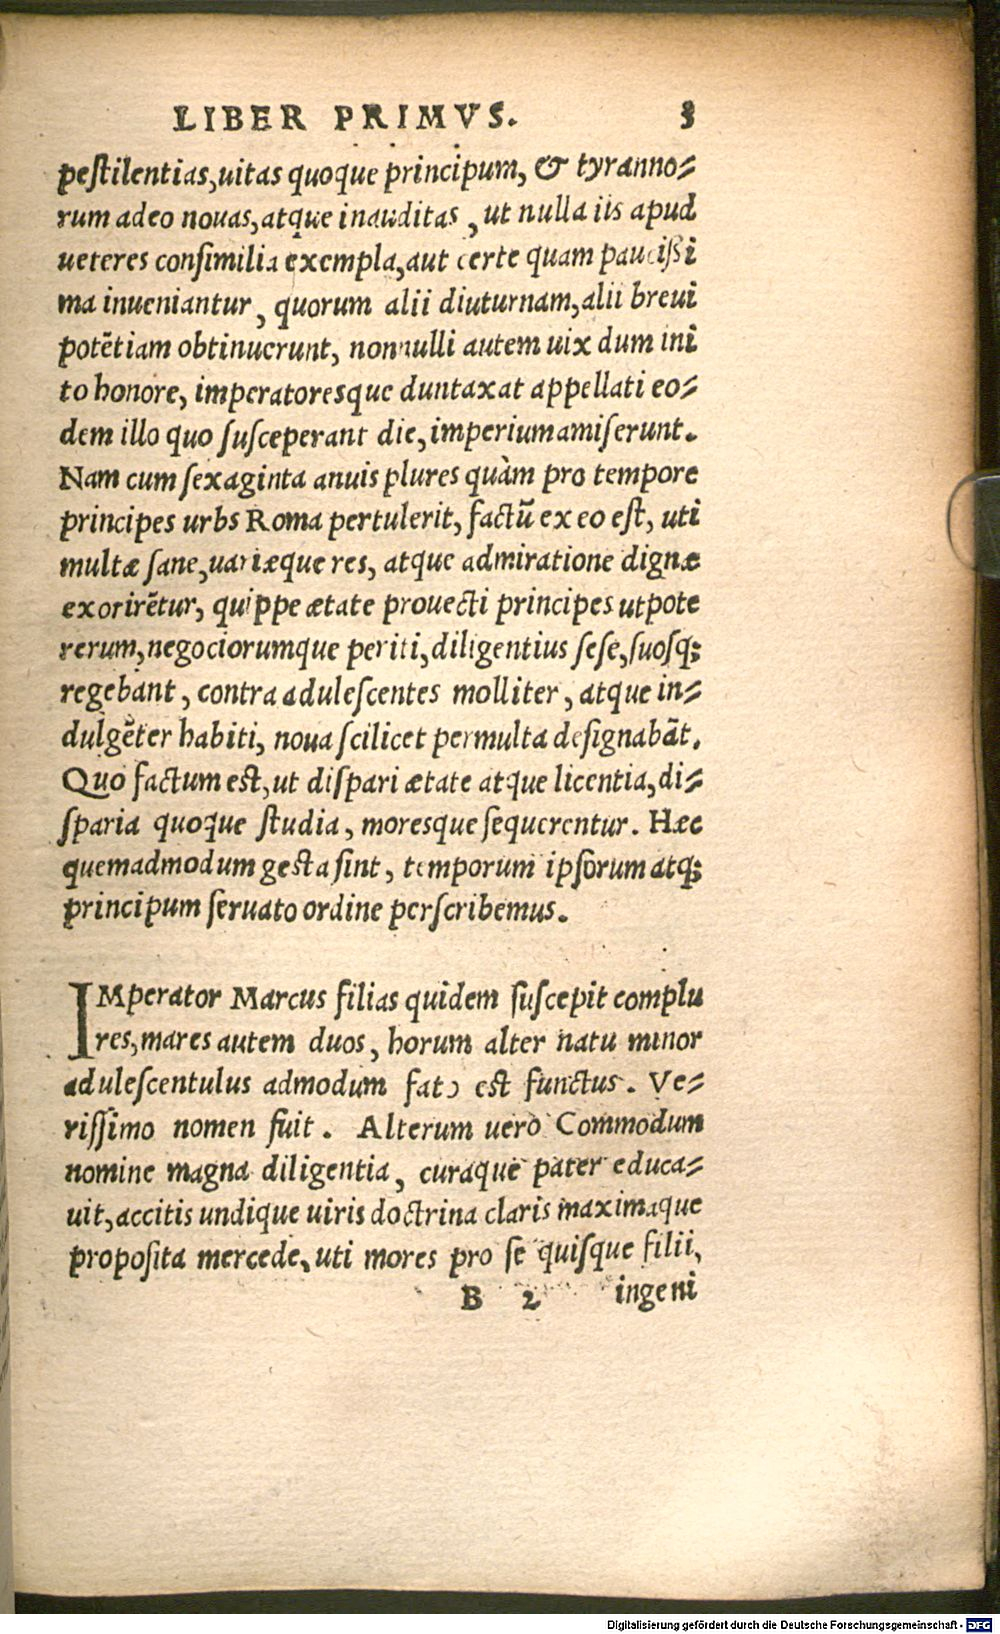 LIBER PRIMVS. 3
peſtilentias,uitas quoque principum, & tyranno-
rum adeo nouas,atque inauditas , ut nulla iis apud
ueteres conſimilia exempla,aut certe quam pauciſſi
ma inueniantur , quorum alii diuturnam,alii breui
potẽtiam obtinuerunt, nonnulli autem uix dum ini
to honore, imperatoresque duntaxat appellati eo-
dem illo quo ſuſceperant die,imperium amiſerunt.
Nam cum ſexaginta anuis plures quàm pro tempore
principes urbs Roma pertulerit, factũ ex eo eſt, uti
multæ ſane,uariæque res, atque admiratione dignæ
exorirẽtur, quippe ætate prouecti principes utpote
rerum,negociorumque periti,diligentius ſeſe,ſuosq;
regebant , contra aduleſcentes molliter , atque in-
dulgẽter habiti, noua ſcilicet permulta deſignabãt.
Quo factum eſt,ut diſpari ætate atque licentia,di-
ſparia quoque ſtudia , moresque ſequerentur. Hæc
quemadmodum geſta ſint, temporum ipſorum atq;
principum ſeruato ordine perſcribemus.
IMperator Marcus filias quidem ſuſcepit complu
res,mares autem duos , horum alter natu minor
aduleſcentulus admodum fato eſt functus. Ve-
riſſimo nomen fuit . Alterum uero Commodum
nomine magna diligentia, curaque pater educa-
uit,accitis undique uiris doctrina claris maximaque
propoſita mercede,uti mores pro ſe quiſque filii,
B 2 ingeni
Digitalisierung gefördert durch die Deutsche Forschungsgemeinschaft - DFG